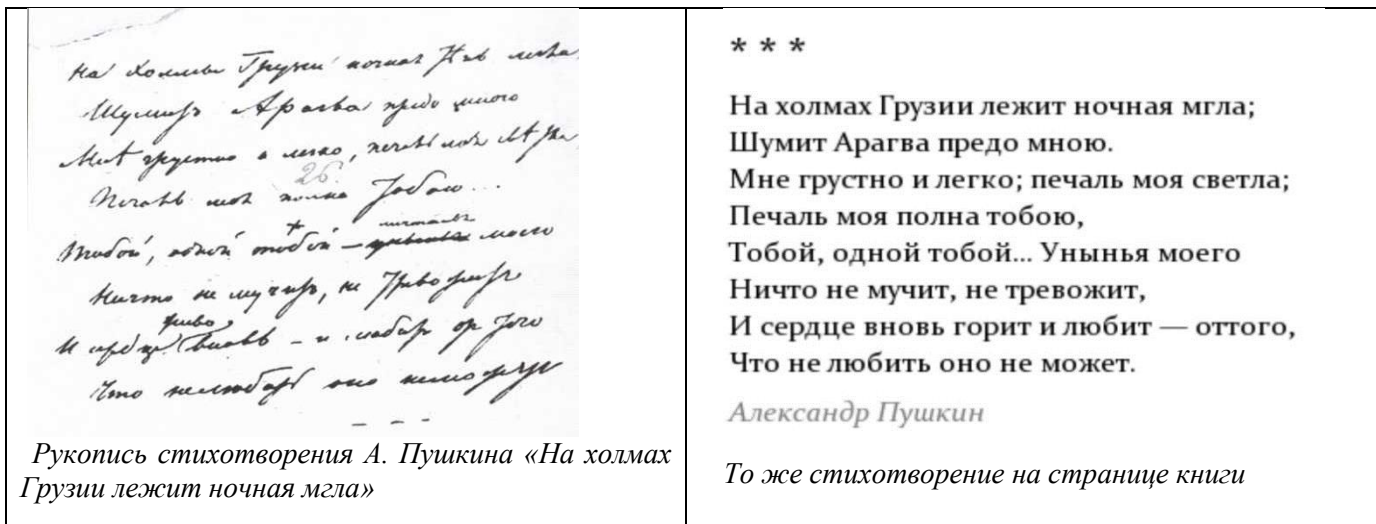 На холмы Грузии ночная тѣнь легла
Шумитъ Арагва предо мною
Мнѣ грустно и легко, печаль моя свѣтла
26.
Печаль моя полна тобою...
Тобой, одной тобой – моего
Ничто не мучитъ, не тревожитъ
живо
И сердце вновь – и любитъ отъ того
Что не любить оно не можетъ
– – –
Рукопись стихотворения А. Пушкина «На холмах
Грузии лежит ночная мгла»
* * *
На холмах Грузии лежит ночная мгла;
Шумит Арагва предо мною.
Мне грустно и легко; печаль моя светла;
Печаль моя полна тобою,
Тобой, одной тобой... Унынья моего
Ничто не мучит, не тревожит,
И сердце вновь горит и любит — оттого,
Что не любить оно не может.
Александр Пушкин
То же стихотворение на странице книги